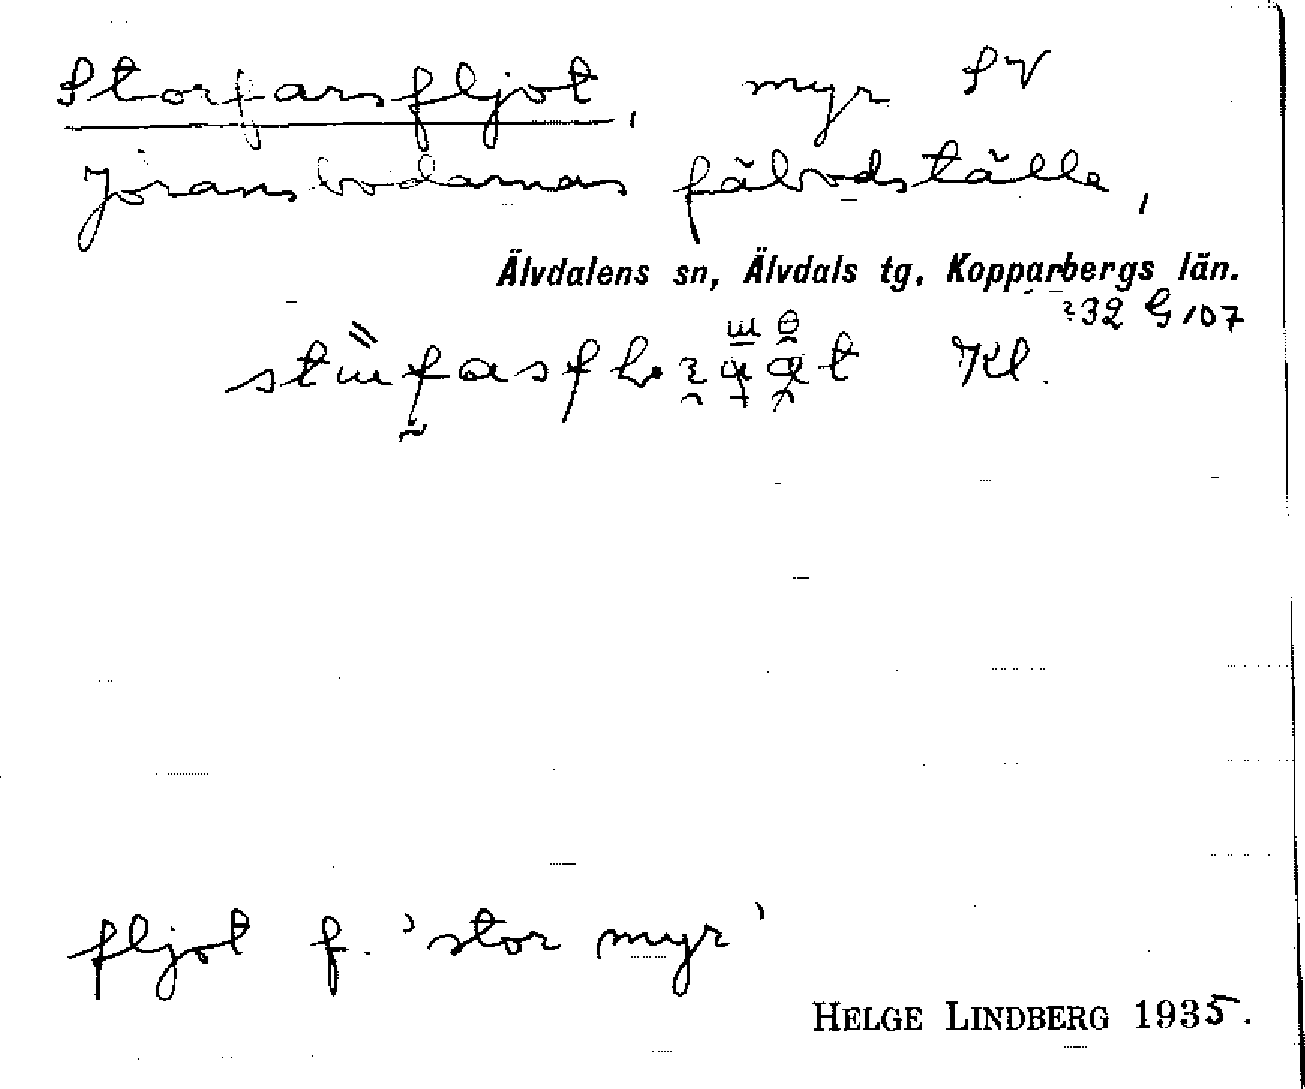 Storfarsfljot, myr SV
Jöransbodarnas fäbodställe,
Älvdalens sn, Älvdals tg, Kopparbergs län.
232 G 107
Kl.
fljot f. 'stor myr'
HELGE LINDBERG 1935.